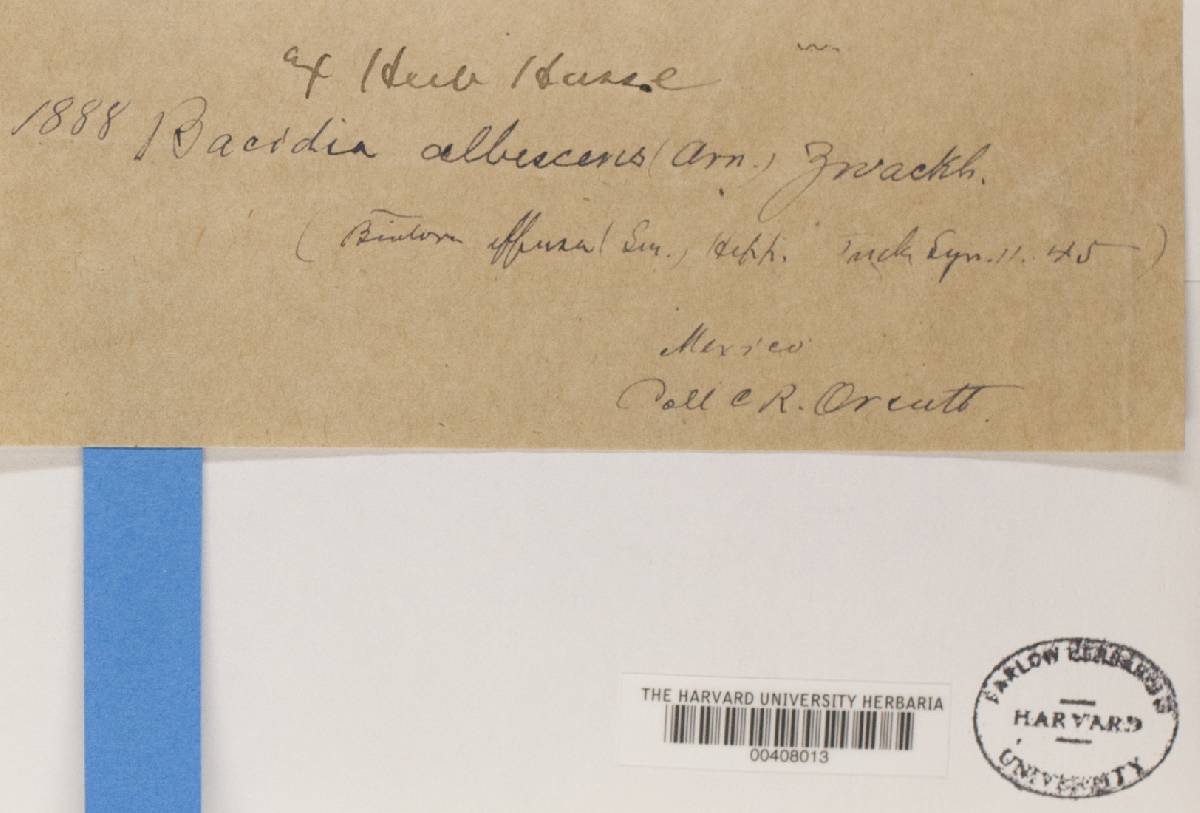 ex Herb Hasse
1888 Bacidia albescens (Arn.) Zwackh.
(Biatora effusa (Sm.) Hepp. Tuck Syn. 11. 45)
Mexico
Coll C R. Orcutt.
THE HARVARD UNIVERSITY HERBARIA
00408013
FARLOW HERBARIUM
HARVARD
UNIVERSITY